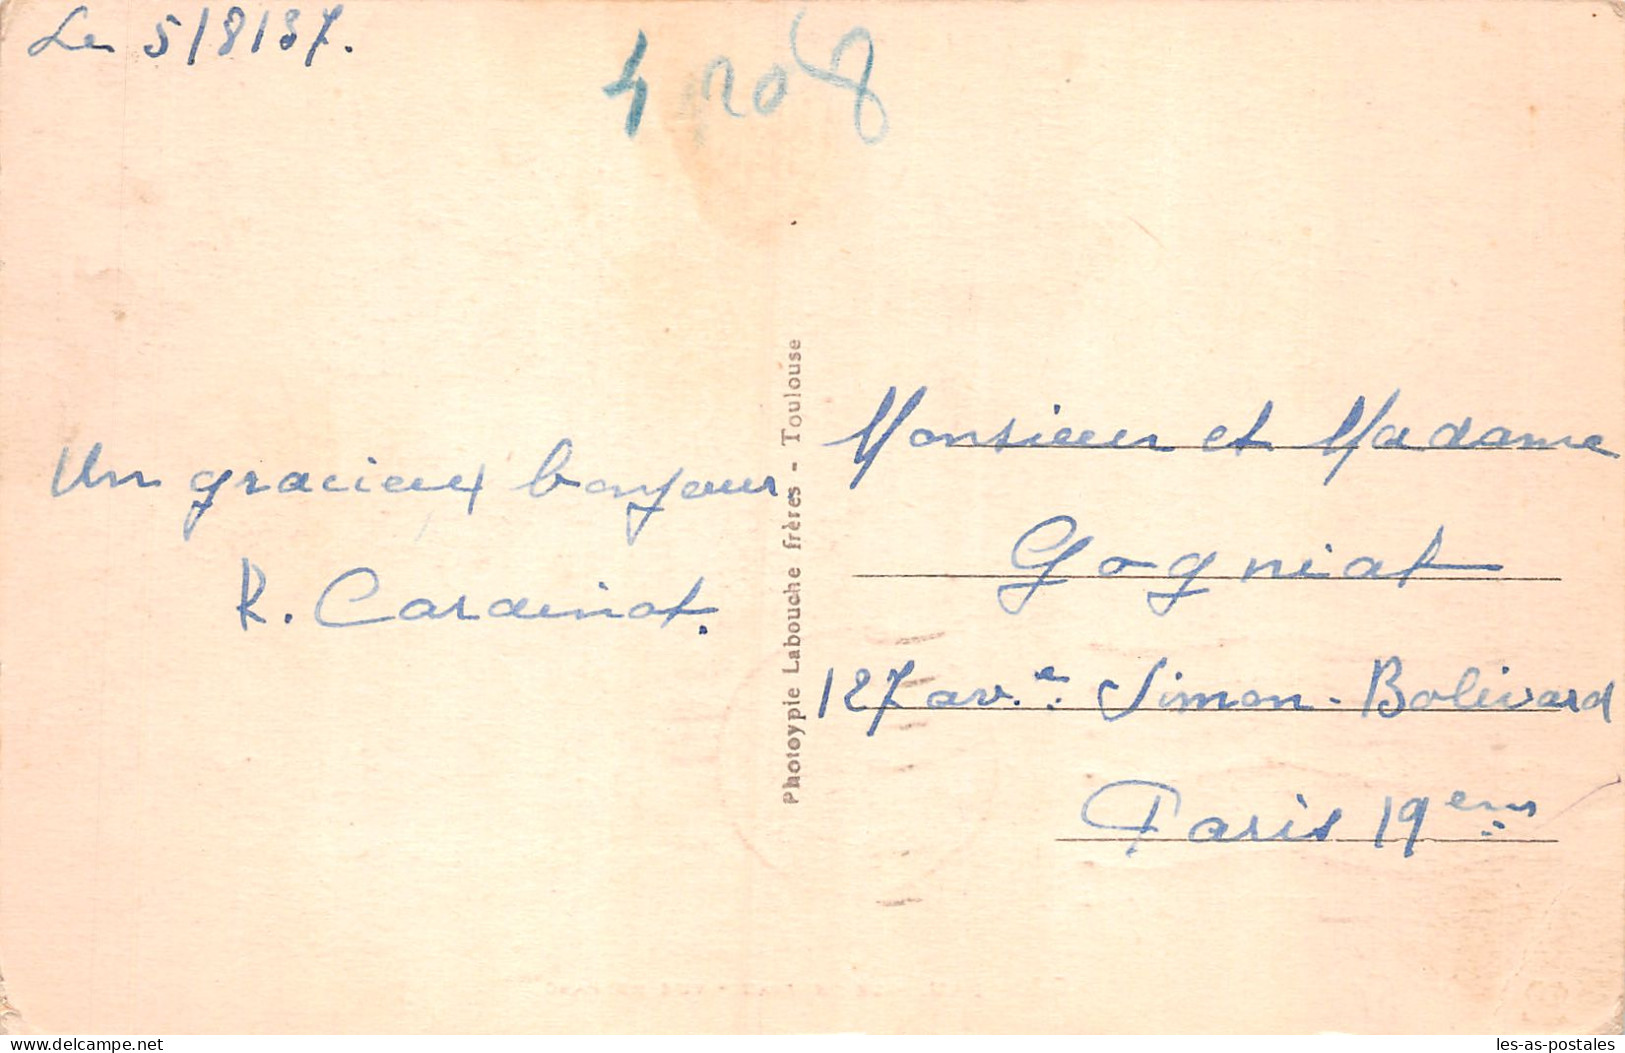 Le 5/8/37.
Un gracieux bonjour
R. Cardinot.
Photoypie Labouche frères - Toulouse
Monsieur et Madame
Gogniat
127 av.e Simon-Bolivard
Paris 19em
delcampe.net
les-as-postales